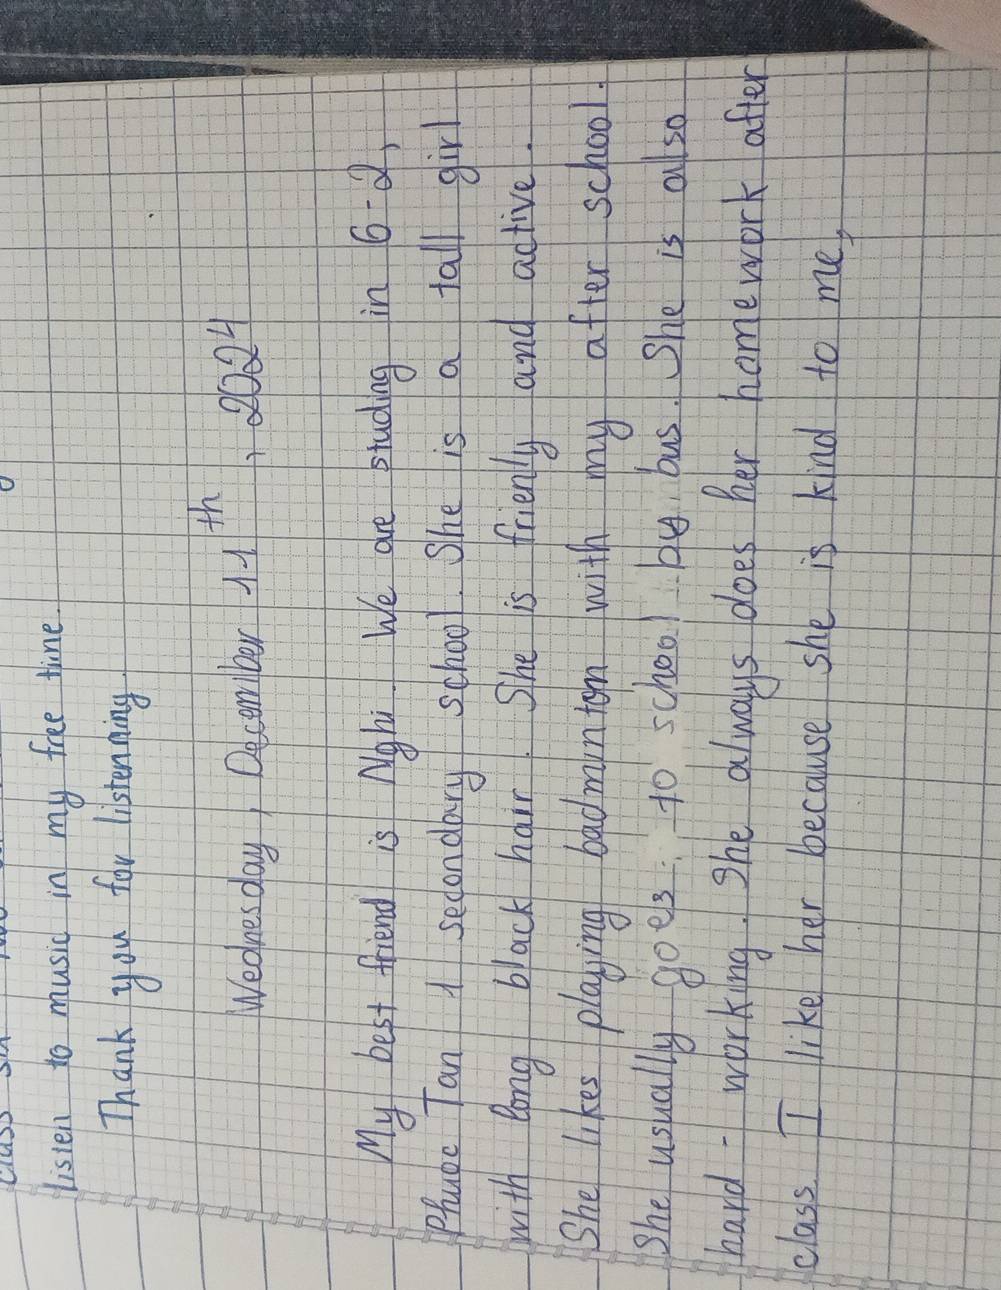 listen to music in my free time.
Thank you for listenning.
Wednesday, December 11th, 2024
My best friend is Nghi. We are studing in 6-2,
Phuoc Tan 1 secondary school. She is a tall girl
with long black hair. She is frienly and active.
She likes playing badmintom with my after school.
She usually goes to school by bus. She is also
hard-working. She always does her homework after
class. I like her because she is kind to me,